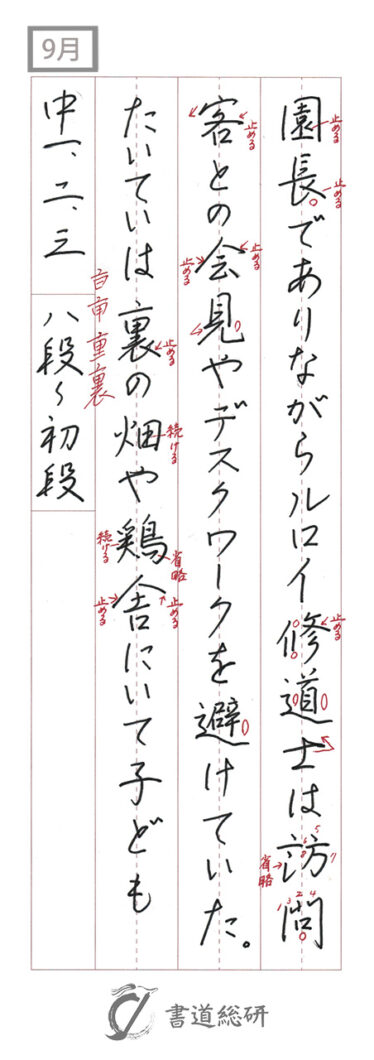 9月
園長でありながらルロイ修道士は訪問
客との会見やデスクワークを避けていた。
たいていは裏の畑や鶏舎にいて子ども
中一、二、三
八段〜初段
止める
止める
止める
止める
止める
止める
止める
続ける
続ける
省略
省略
止める
止める
書道総研